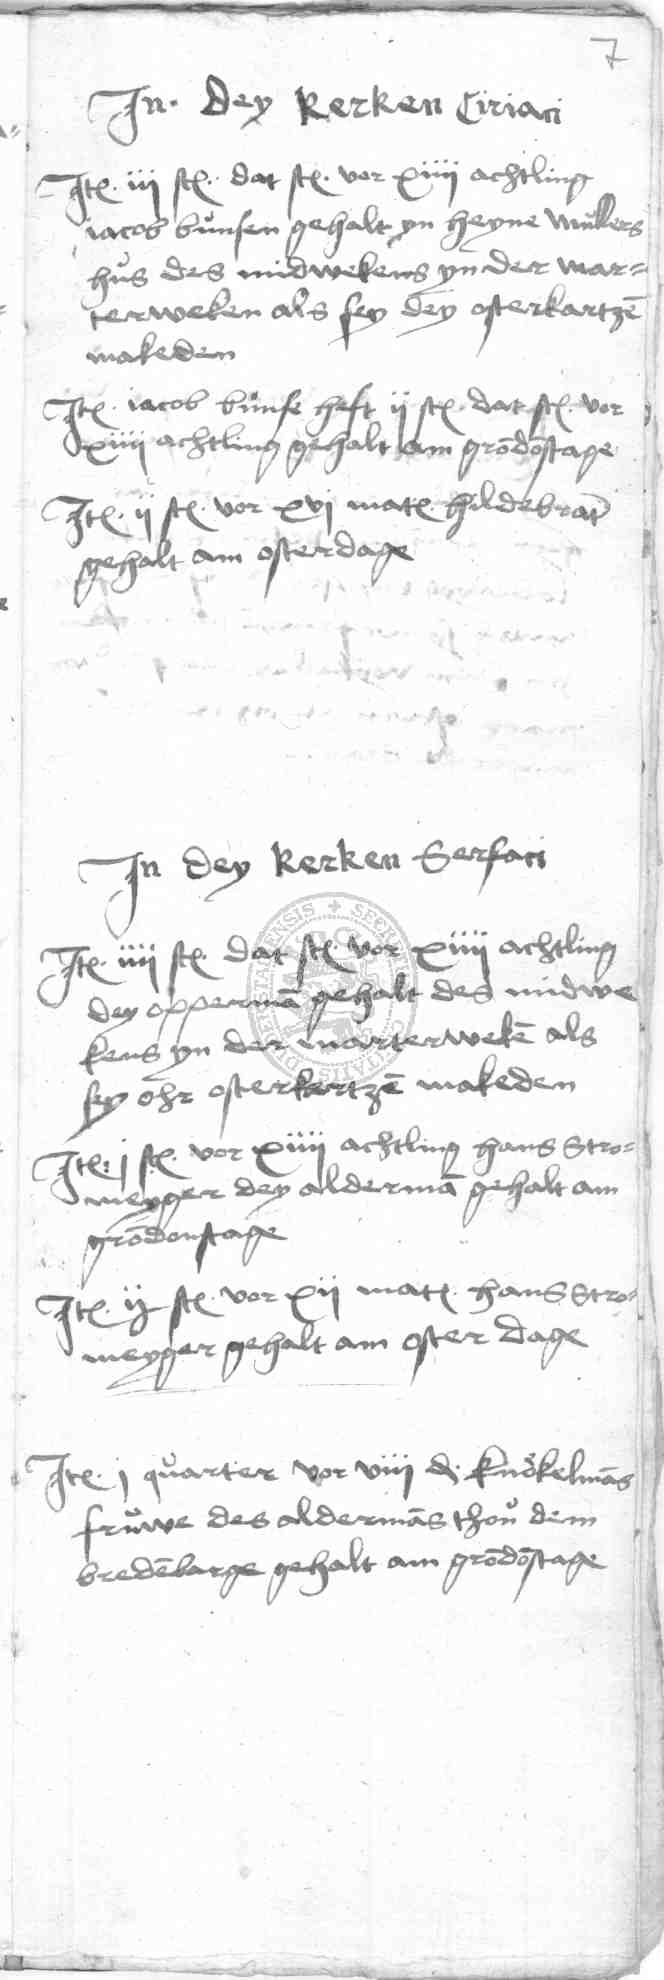 7
In dey kerken Ciriaci
Itē. iij stē. dat stē. vor xiiij achtling
iacob bunsen gehalt yn heyne mullers
hůs des midwekens yn der mar=
terweken als sey dey osterkartzē
makeden
Itē. iacob bůnse heft ij stē. dat stē. vor
xiiij achtling gehalt am grōdōstage
Itē. ij stē. vor xvj matē. hildebrāt
gehalt am osterdage
In dey kerken Serfaci
Itē. iiij stē. dat stē. vor xiiij achtling
dey oppermā gehalt des midwe
kens yn der marterwekē als
sey ohr osterkertzē makeden
Itē: j stē. vor xiiij achtling hans Stro=
meyger dey aldermā gehalt am
grōdonstage
Itē. ij stē. vor xij matē. hans Stro=
meyger gehalt am oster dage
Itē. j quarter vor viij d. knökelmās
frůwe des aldermās thoů dem
bredēbarge gehalt am grōdōstage